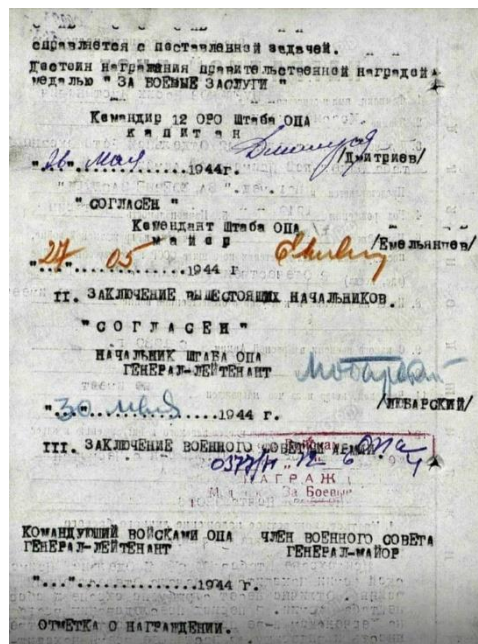 справляется с поставленной задачей.
Достоин награждения правительственной наградой
медалью " ЗА БОЕВЫЕ ЗАСЛУГИ "
Командир 12 ОРО Штаба ОПА
капитан
/Дмитриев/
"26" Мая 1944г.
" СОГЛАСЕН "
Комендант Штаба ОПА
майор
/Емельянчев/
"27" 05 1944 г
II. ЗАКЛЮЧЕНИЕ ВЫШЕСТОЯЩИХ НАЧАЛЬНИКОВ.
"СОГЛАСЕН"
НАЧАЛЬНИК ШТАБА ОПА
ГЕНЕРАЛ-ЛЕЙТЕНАНТ
/ЛЮБАРСКИЙ/
"30" мая 1944 г
III. ЗАКЛЮЧЕНИЕ ВОЕННОГО СОВЕТА АРМИИ.
Приказом ОПА
0377/Н "12" 6
НАГРАЖ
За Боевые
КОМАНДУЮЩИЙ ВОЙСКАМИ ОПА ЧЛЕН ВОЕННОГО СОВЕТА
ГЕНЕРАЛ-ЛЕЙТЕНАНТ ГЕНЕРАЛ-МАЙОР
"..."............1944 г.
ОТМЕТКА О НАГРАЖДЕНИИ.